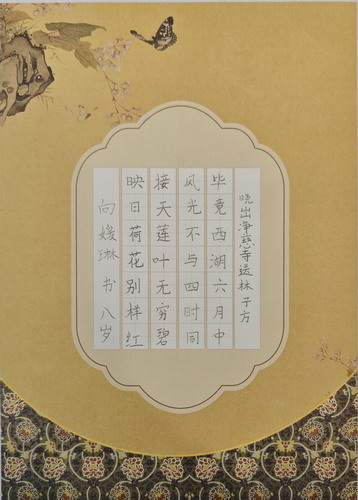 晓出净慈寺送林子方
毕竟西湖六月中
风光不与四时同
接天莲叶无穷碧
映日荷花别样红
向媛琳书八岁